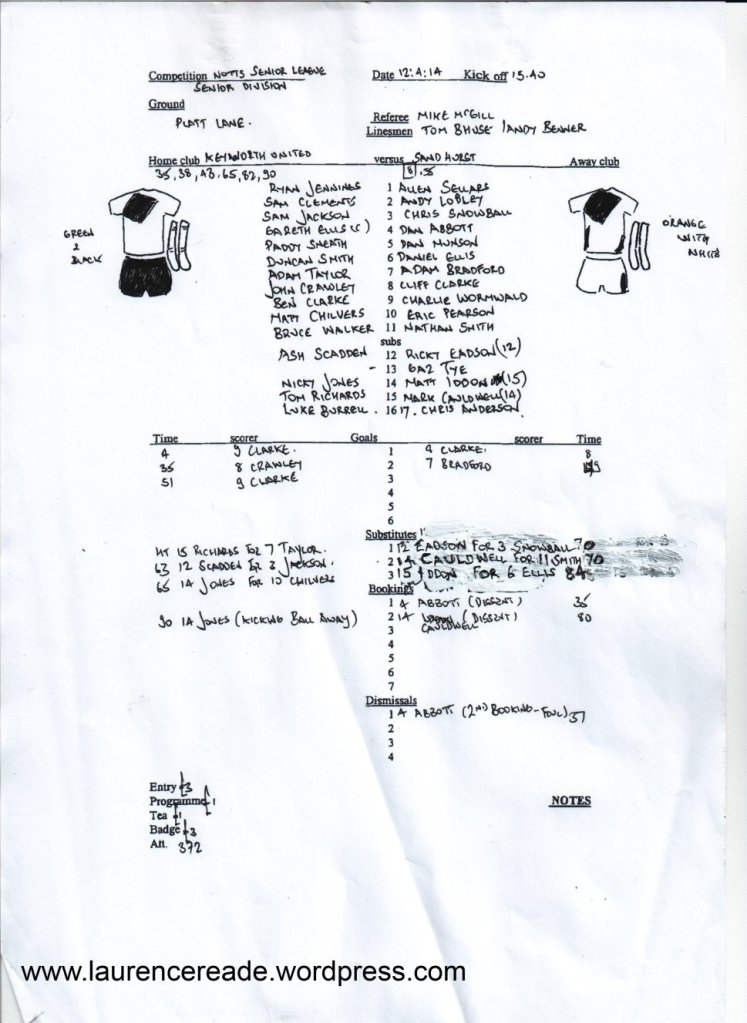 Competition NOTTS SENIOR LEAGUE Date 12.4.14 Kick off 15.40
SENIOR DIVISION
Ground
PLATT LANE. Referee MIKE McGILL
Linesmen TOM BHUSE / ANDY BENNER
Home club KEYWORTH UNITED versus SANDHURST Away club
35,38,43,65,82,90 8,
RYAN JENNINGS 1 ALLEN SELLARS
SAM CLEMENTS 2 ANDY LOBLEY
SAM JACKSON 3 CHRIS SNOWBALL
GREEN & BLACK
GARETH ELLIS (c) 4 DAN ABBOTT
ORANGE WITH WHITE
PADDY SNEATH 5 DAN MUNSON
DUNCAN SMITH 6 DANIEL ELLIS
ADAM TAYLOR 7 ADAM BRADFORD
JOHN CRAWLEY 8 CLIFF CLARKE
BEN CLARKE 9 CHARLIE WORMWALD
MATT CHILVERS 10 ERIC PEARSON
BRUCE WALKER 11 NATHAN SMITH
subs
ASH SCADDEN 12 RICKY EADSON (12)
- 13 GAZ TYE
NICKY JONES 14 MATT IDDON (15)
TOM RICHARDS 15 MARK CAULDWELL (14)
LUKE BURRELL . 16 17. CHRIS ANDERSON
Time scorer Goals scorer Time
4 9 CLARKE. 1 9 CLARKE. 8
35 8 CRAWLEY 2 7 BRADFORD
51 9 CLARKE 3
4
5
6
Substitutes
HT 15 RICHARDS FOR 7 TAYLOR. 1 12 EADSON FOR 3 SNOWBALL 70
63 12 SCADDEN FOR 3 JACKSON. 2 14 CAULDWELL FOR 11 SMITH 70
65 14 JONES FOR 10 CHILVERS 3 15 IDDON FOR 6 ELLIS 84
Bookings
1 4 ABBOTT (DISSENT) 35
90 14 JONES (KICKING BALL AWAY) 2 14 (DISSENT) 80
3 CAULDWELL
4
5
6
7
Dismissals
1 4 ABBOTT (2ND BOOKING - FOUL) 37
2
3
4
Entry £3
Programme £1 NOTES
Tea £1
Badge £3
Att. 372
www.laurencereade.wordpress.com